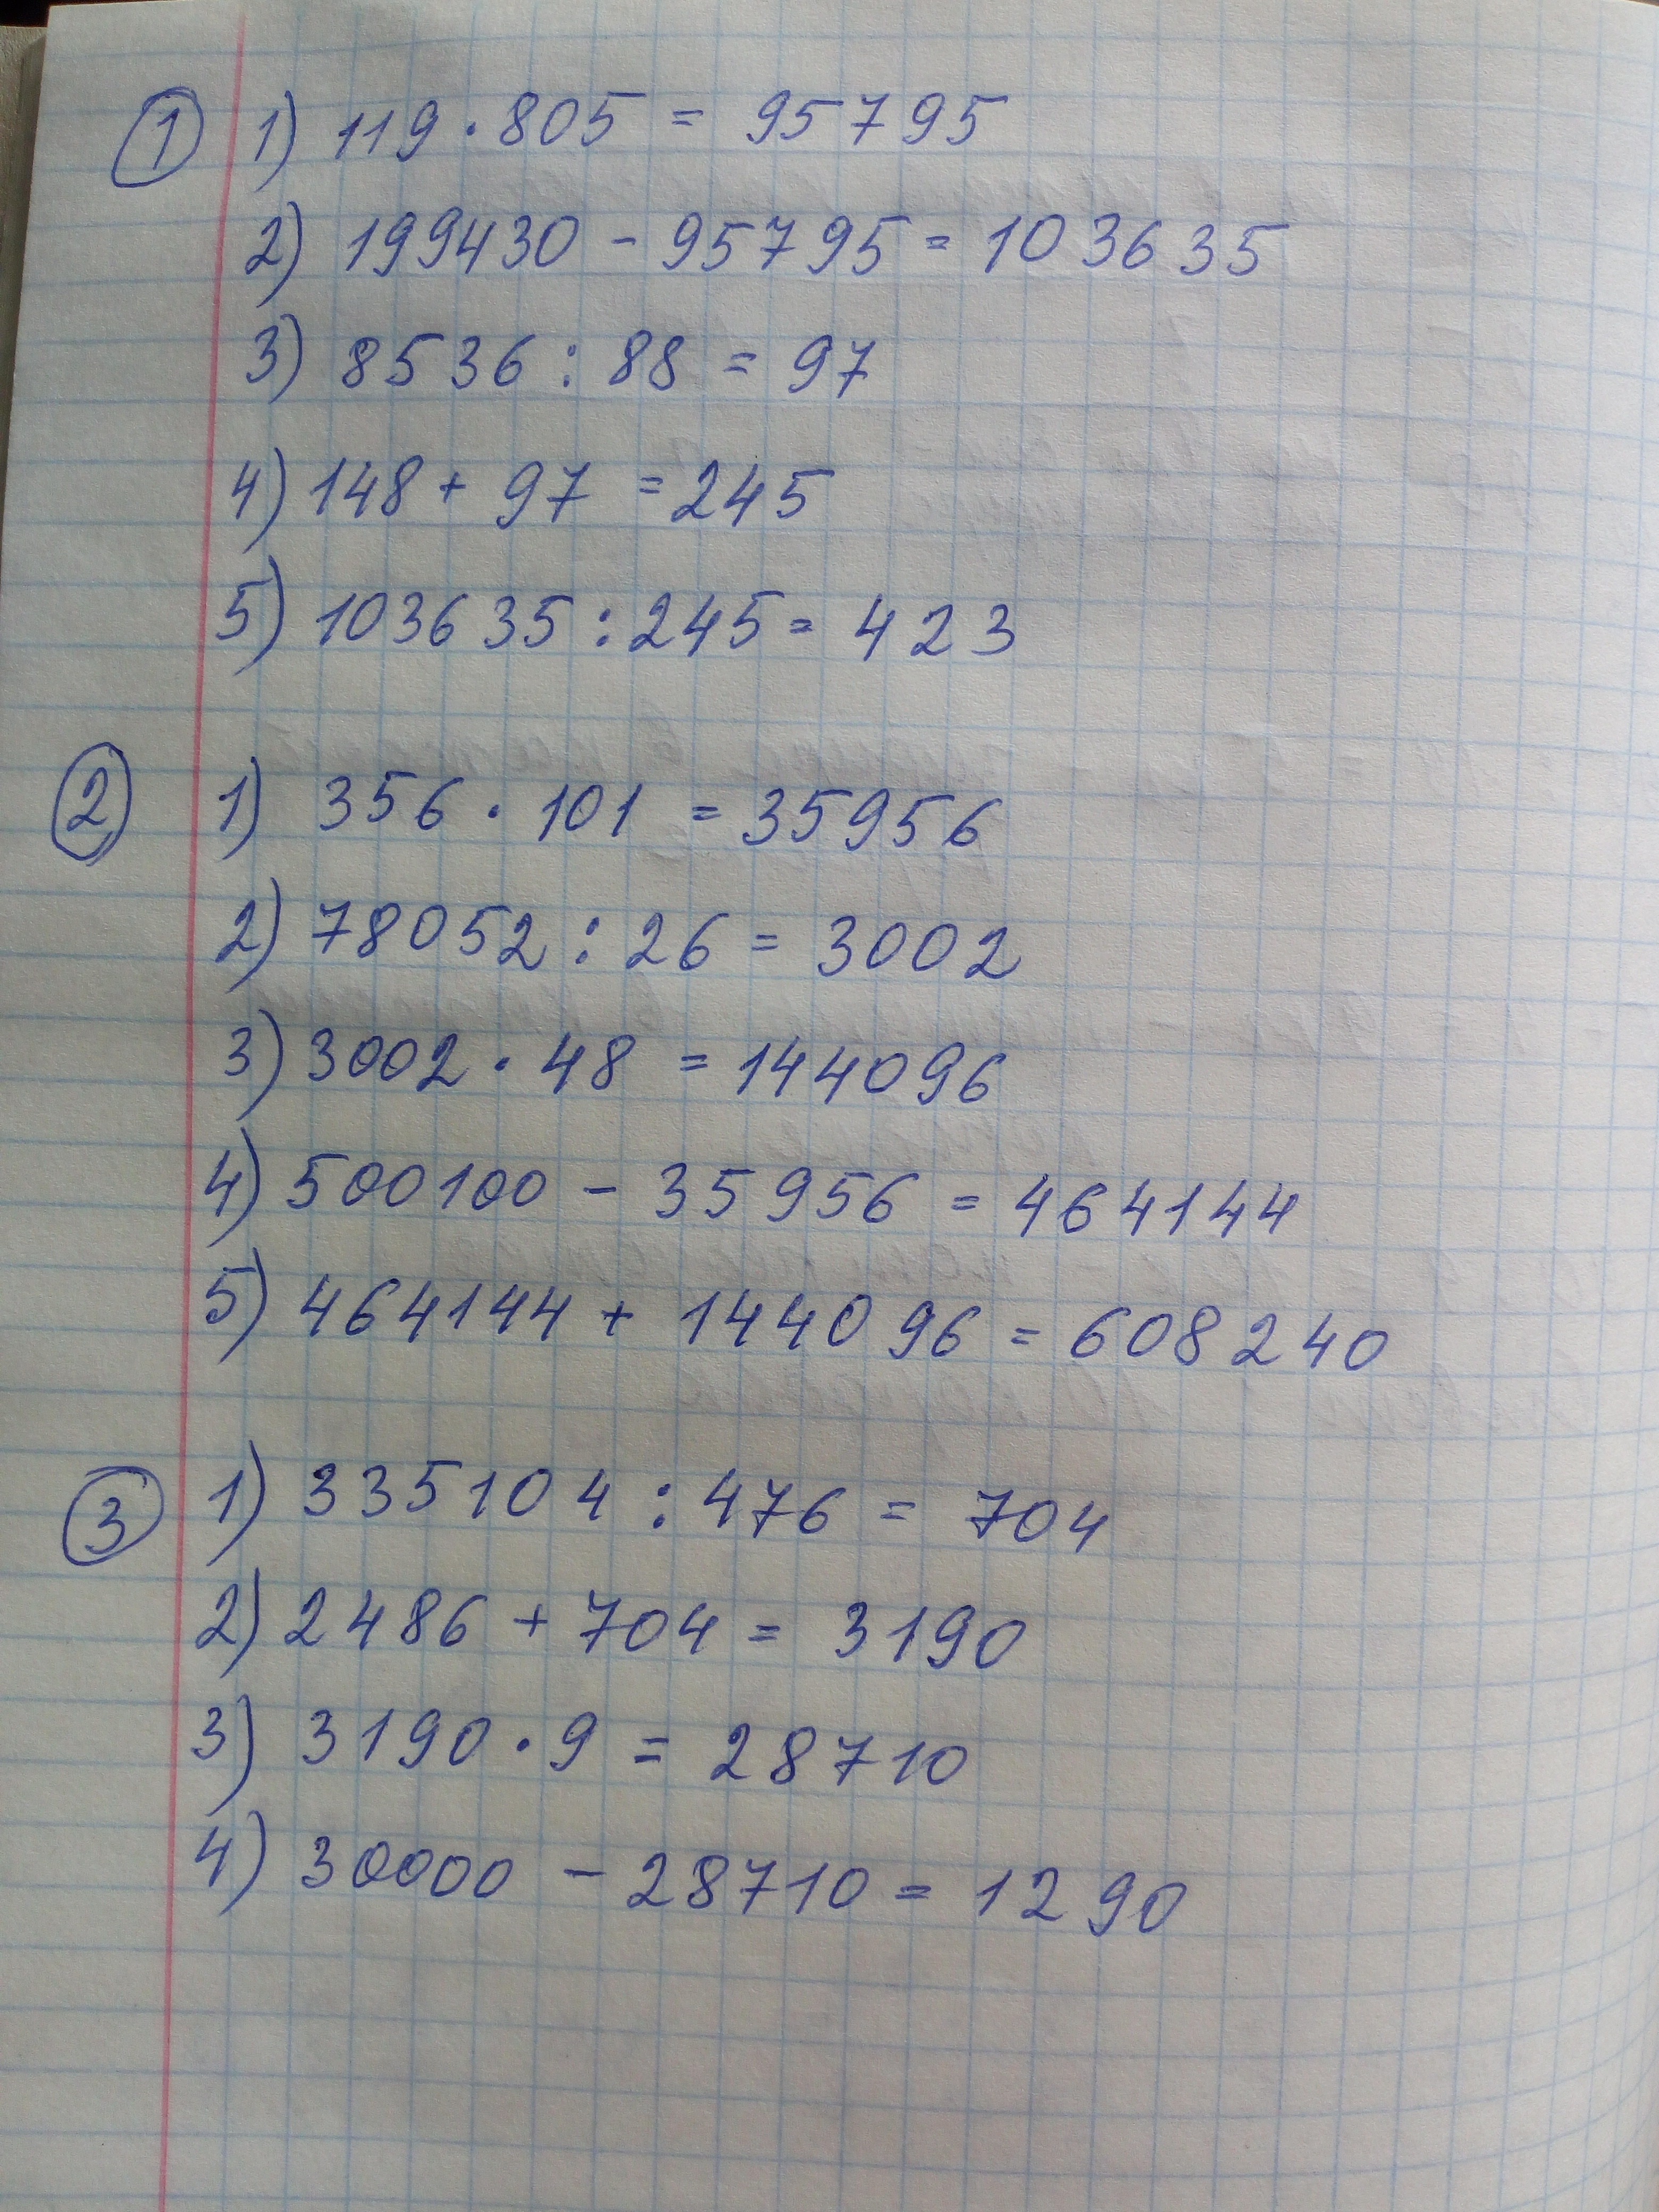 1 1) 119 · 805 = 95795
2) 199430 - 95795 = 103635
3) 8536 : 88 = 97
4) 148 + 97 = 245
5) 103635 : 245 = 423
2 1) 356 · 101 = 35956
2) 78052 : 26 = 3002
3) 3002 · 48 = 144096
4) 500100 - 35956 = 464144
5) 464144 + 144096 = 608240
3 1) 335104 : 476 = 704
2) 2486 + 704 = 3190
3) 3190 · 9 = 28710
4) 30000 - 28710 = 1290